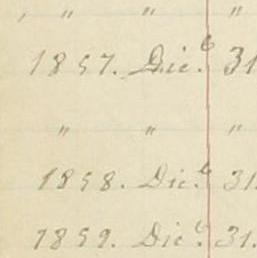 " " "
1857. Dic.e 31
" " "
1858. Dic.e 31.
1859. Dic.e 31.